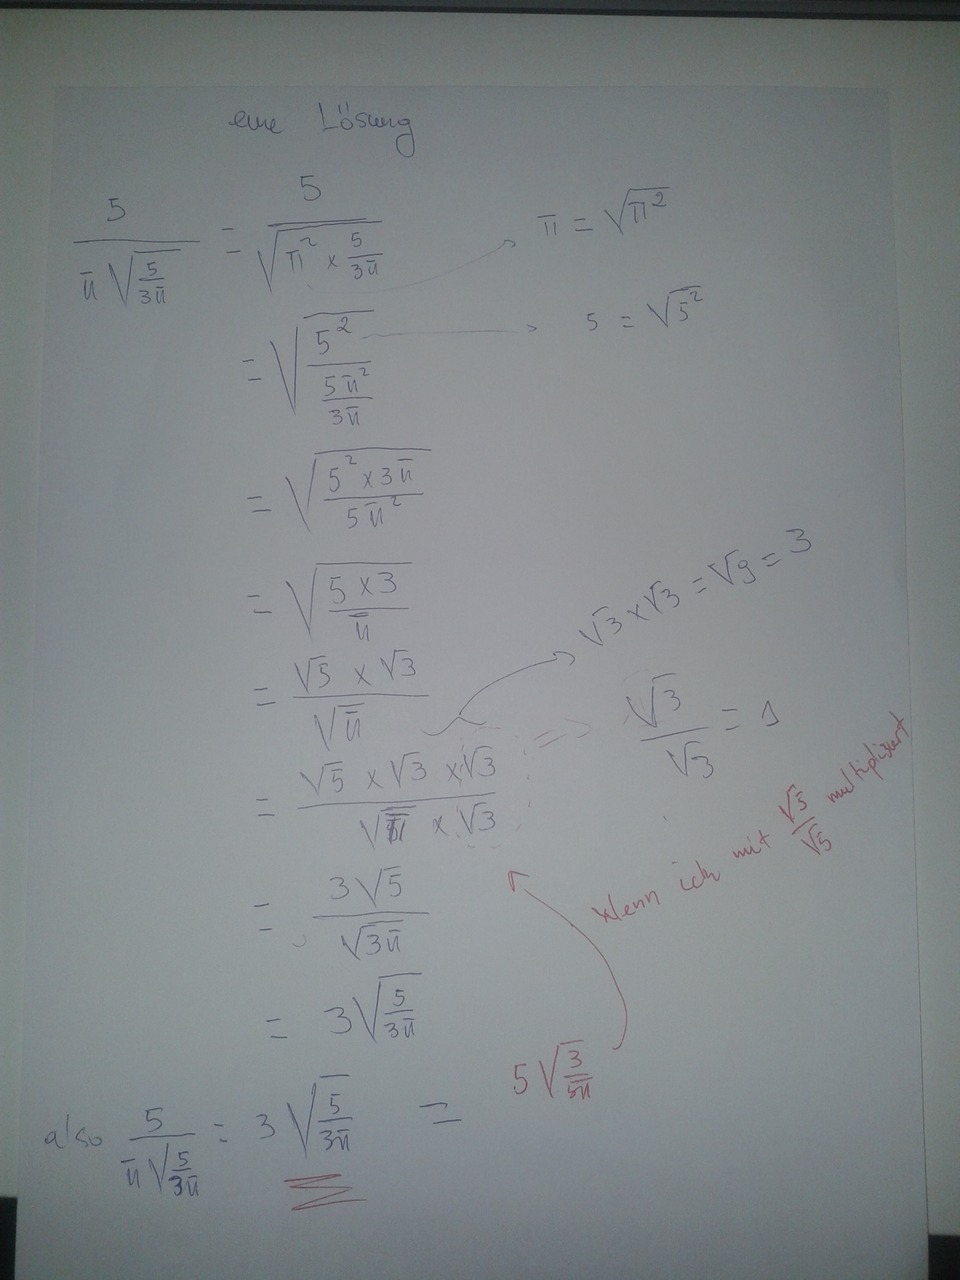 eine Lösung
5/(π√(5/(3π))) = 5/√(π² × 5/(3π))
π = √(π²)
= √(5²/(5π²/(3π)))
5 = √(5²)
= √((5² × 3π)/(5π²))
= √((5 × 3)/π)
√3 × √3 = √9 = 3
= (√5 × √3)/√π
√3/√3 = 1
= (√5 × √3 × √3)/(√π × √3)
Wenn ich mit √5/√5 multipliziert
= 3√5/√(3π)
= 3√(5/(3π))
also 5/(π√(5/(3π))) = 3√(5/(3π)) = 5√(3/(5π))